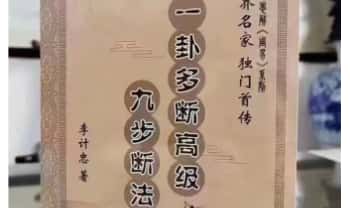 界名家 独门首传
一卦多断高级
九步断法
李计忠 著